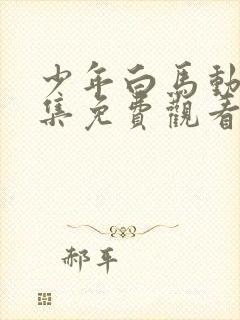 少年白馬動
集免費觀看
郝平